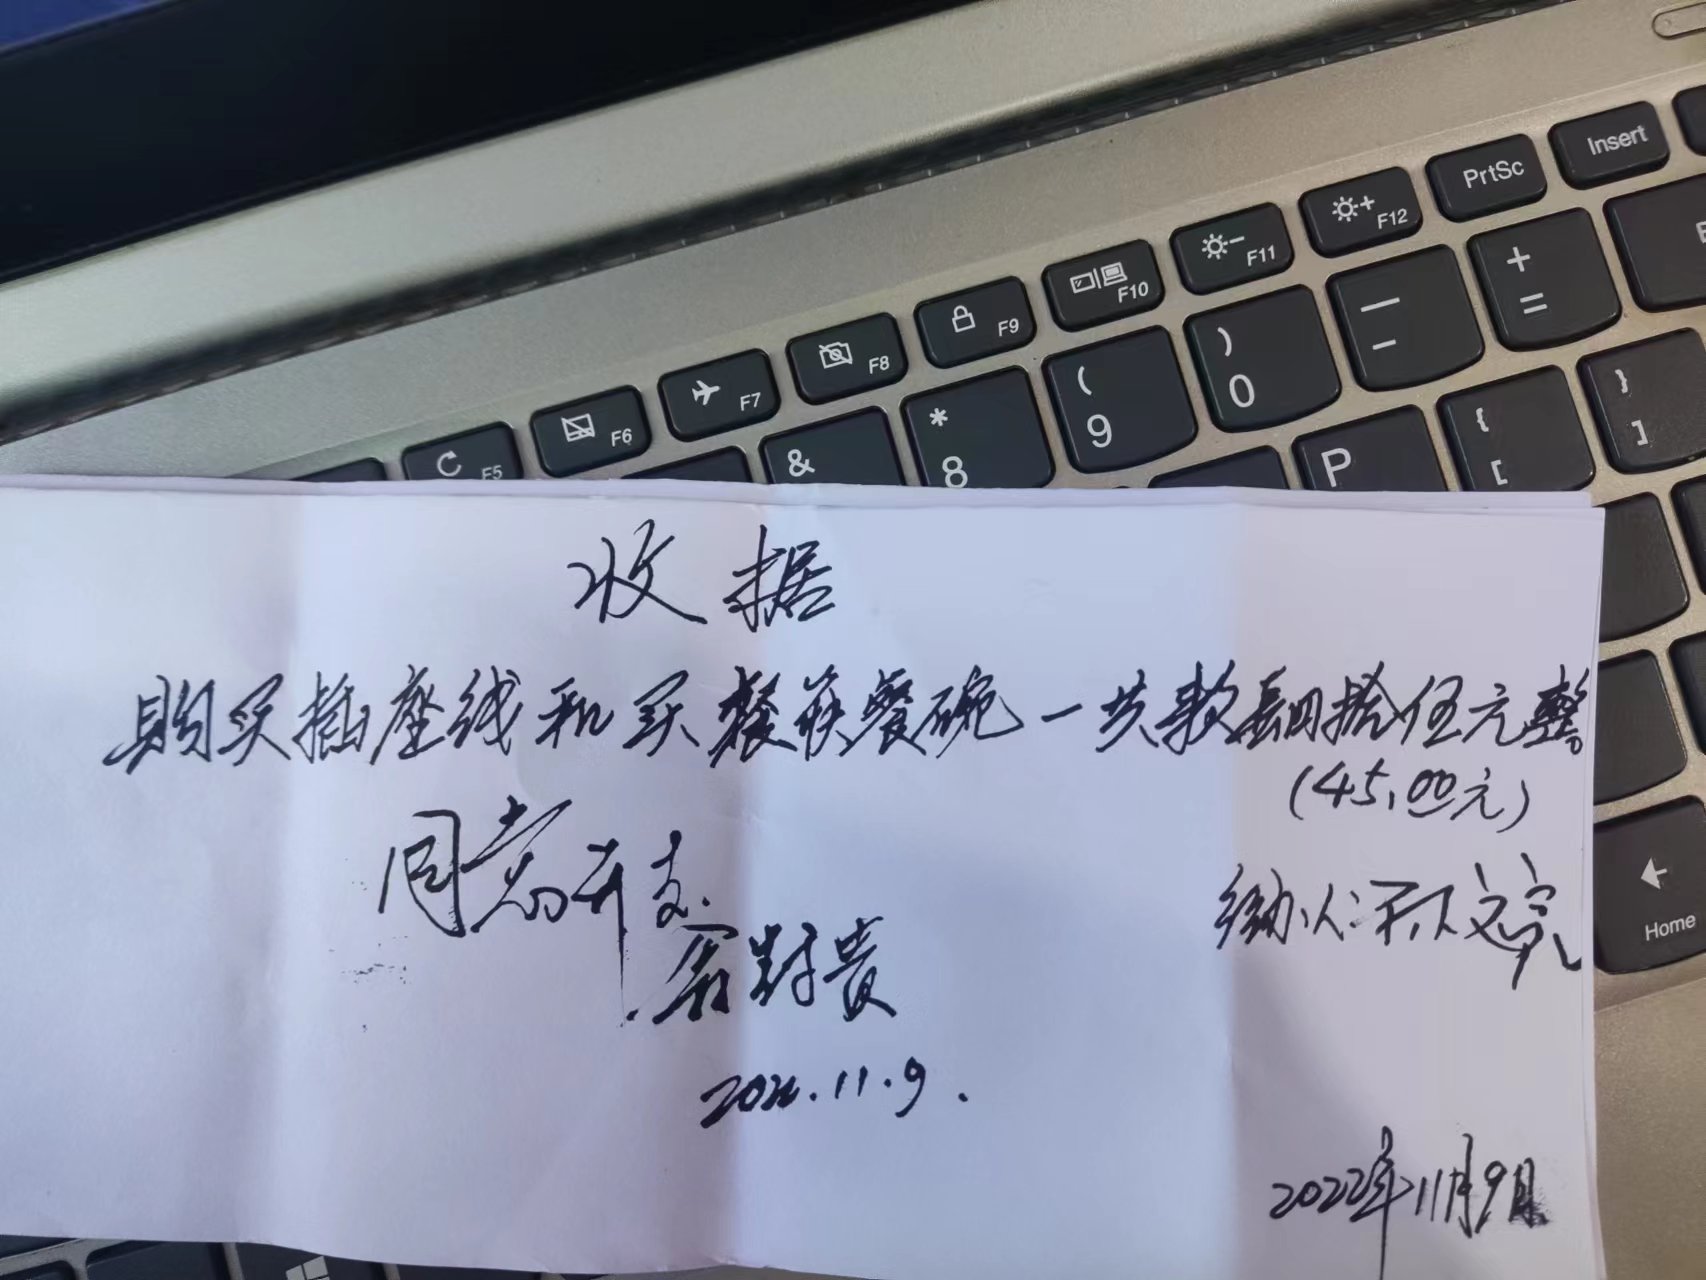 Insert
PrtSc
F12
F11
F10
F9
F8
F7
F6
F5
+
=
—
-
)
0
(
9
*
8
&
}
]
{
[
P
Home
收据
购买插座线和买餐筷餐碗一共款肆拾伍元整
(45.00元)
同意开支.
2022.11.9.
2022年11月9日